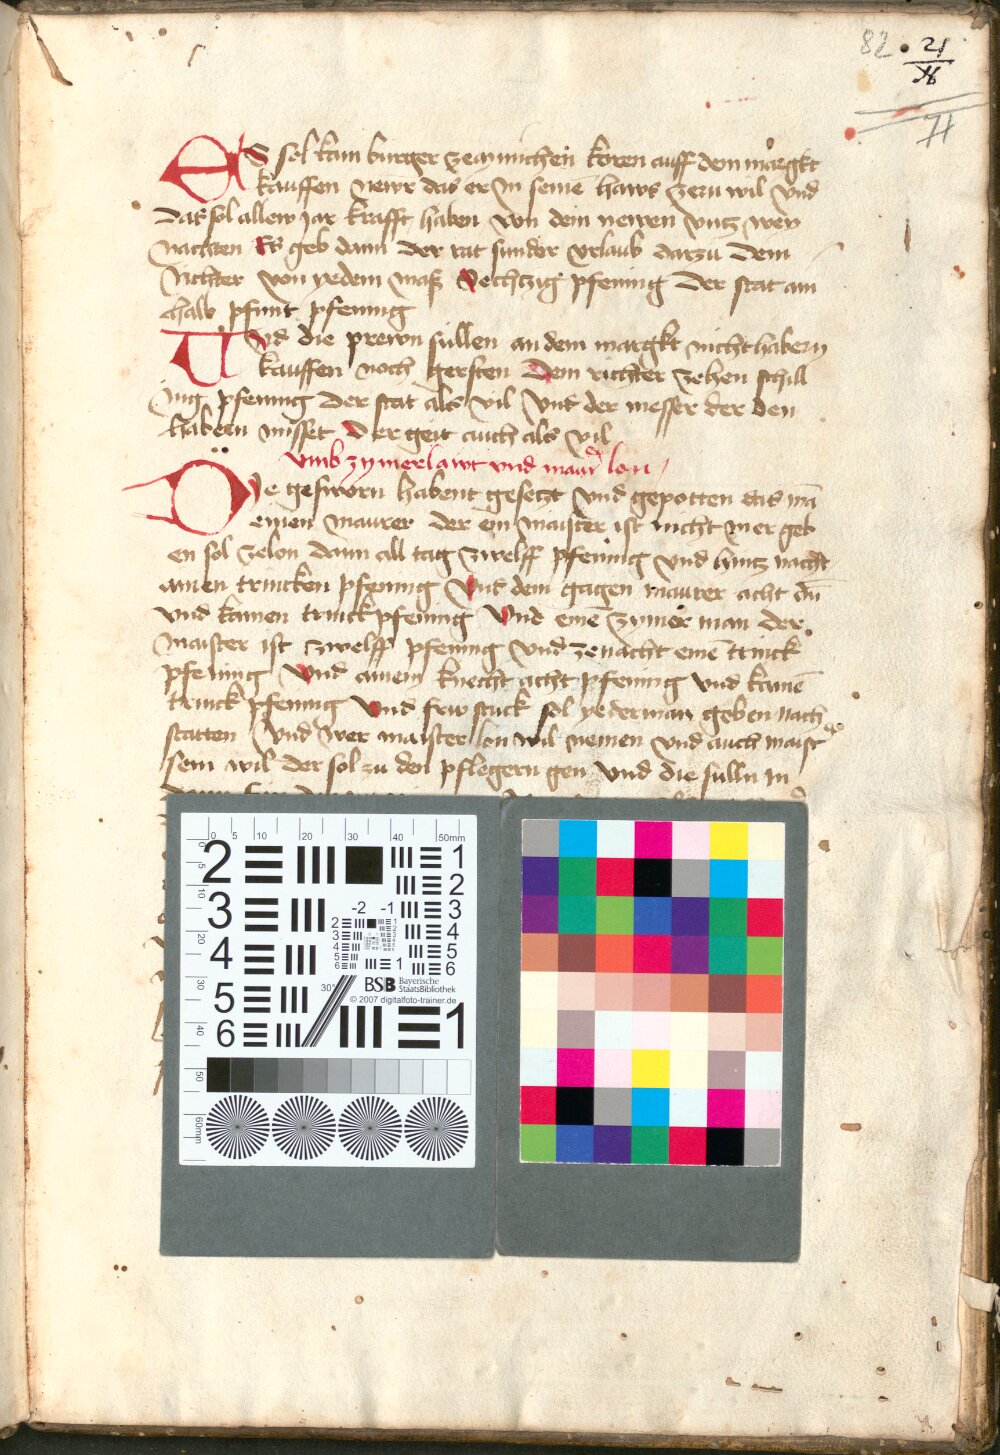 82 . 21
H
71
ES sol kain burger ze münichen koren auff dem margkt
kauffen newr das er in seinē haws zeru wil vnd
das sol allew jar krafft haben von dem newen vntz wey
nachten Es geb dann der rat sunder vrlaub darzu dem
richter von yedem mass sechtzig pfennig der stat ain
halb pfunt pfennig
Und die prewn süllen an dem margkt nicht habern
kauffen noch gersten Dem richter zehen schill
ing pfennig Der stat als vil Vnd der messer der den
habern misset Der geit auch als vil
Vmb zymerlawt vnd maur lon
Die gesworn habent gesetzt vnd gepotten das mā
einen maurer der ein maister ist nicht mer geb
en sol ze lon dann all tag zwelff pfennig vnd hintz nacht
ainen trincken pfennig Vnd dem gagen maurer acht dn
vnd kainen trinckpfennig Vnd einē zymer man der
maister ist zwelff pfennig Vnd ze nacht einē trinck
pfennig Vnd ainem knecht acht pfennig vnd kainē
trinck pfennig Vnd frw stuck sol yederman geben nach
statten Vnd wer maister lon wil nemen vnd auch maist
sein wil der sol zu den pflegern gen Vnd die sülln in
0 5 10 20 30 40 50mm
0 5 10 20 30 40 50 60mm
2 1
2
3 3
4 4
5 5
6 6
-2 -1
2 1
3 2
4 3
5 4
6 5
6
1
30°
BSB Bayerische
StaatsBibliothek
© 2007 digitalfoto-trainer.de
1